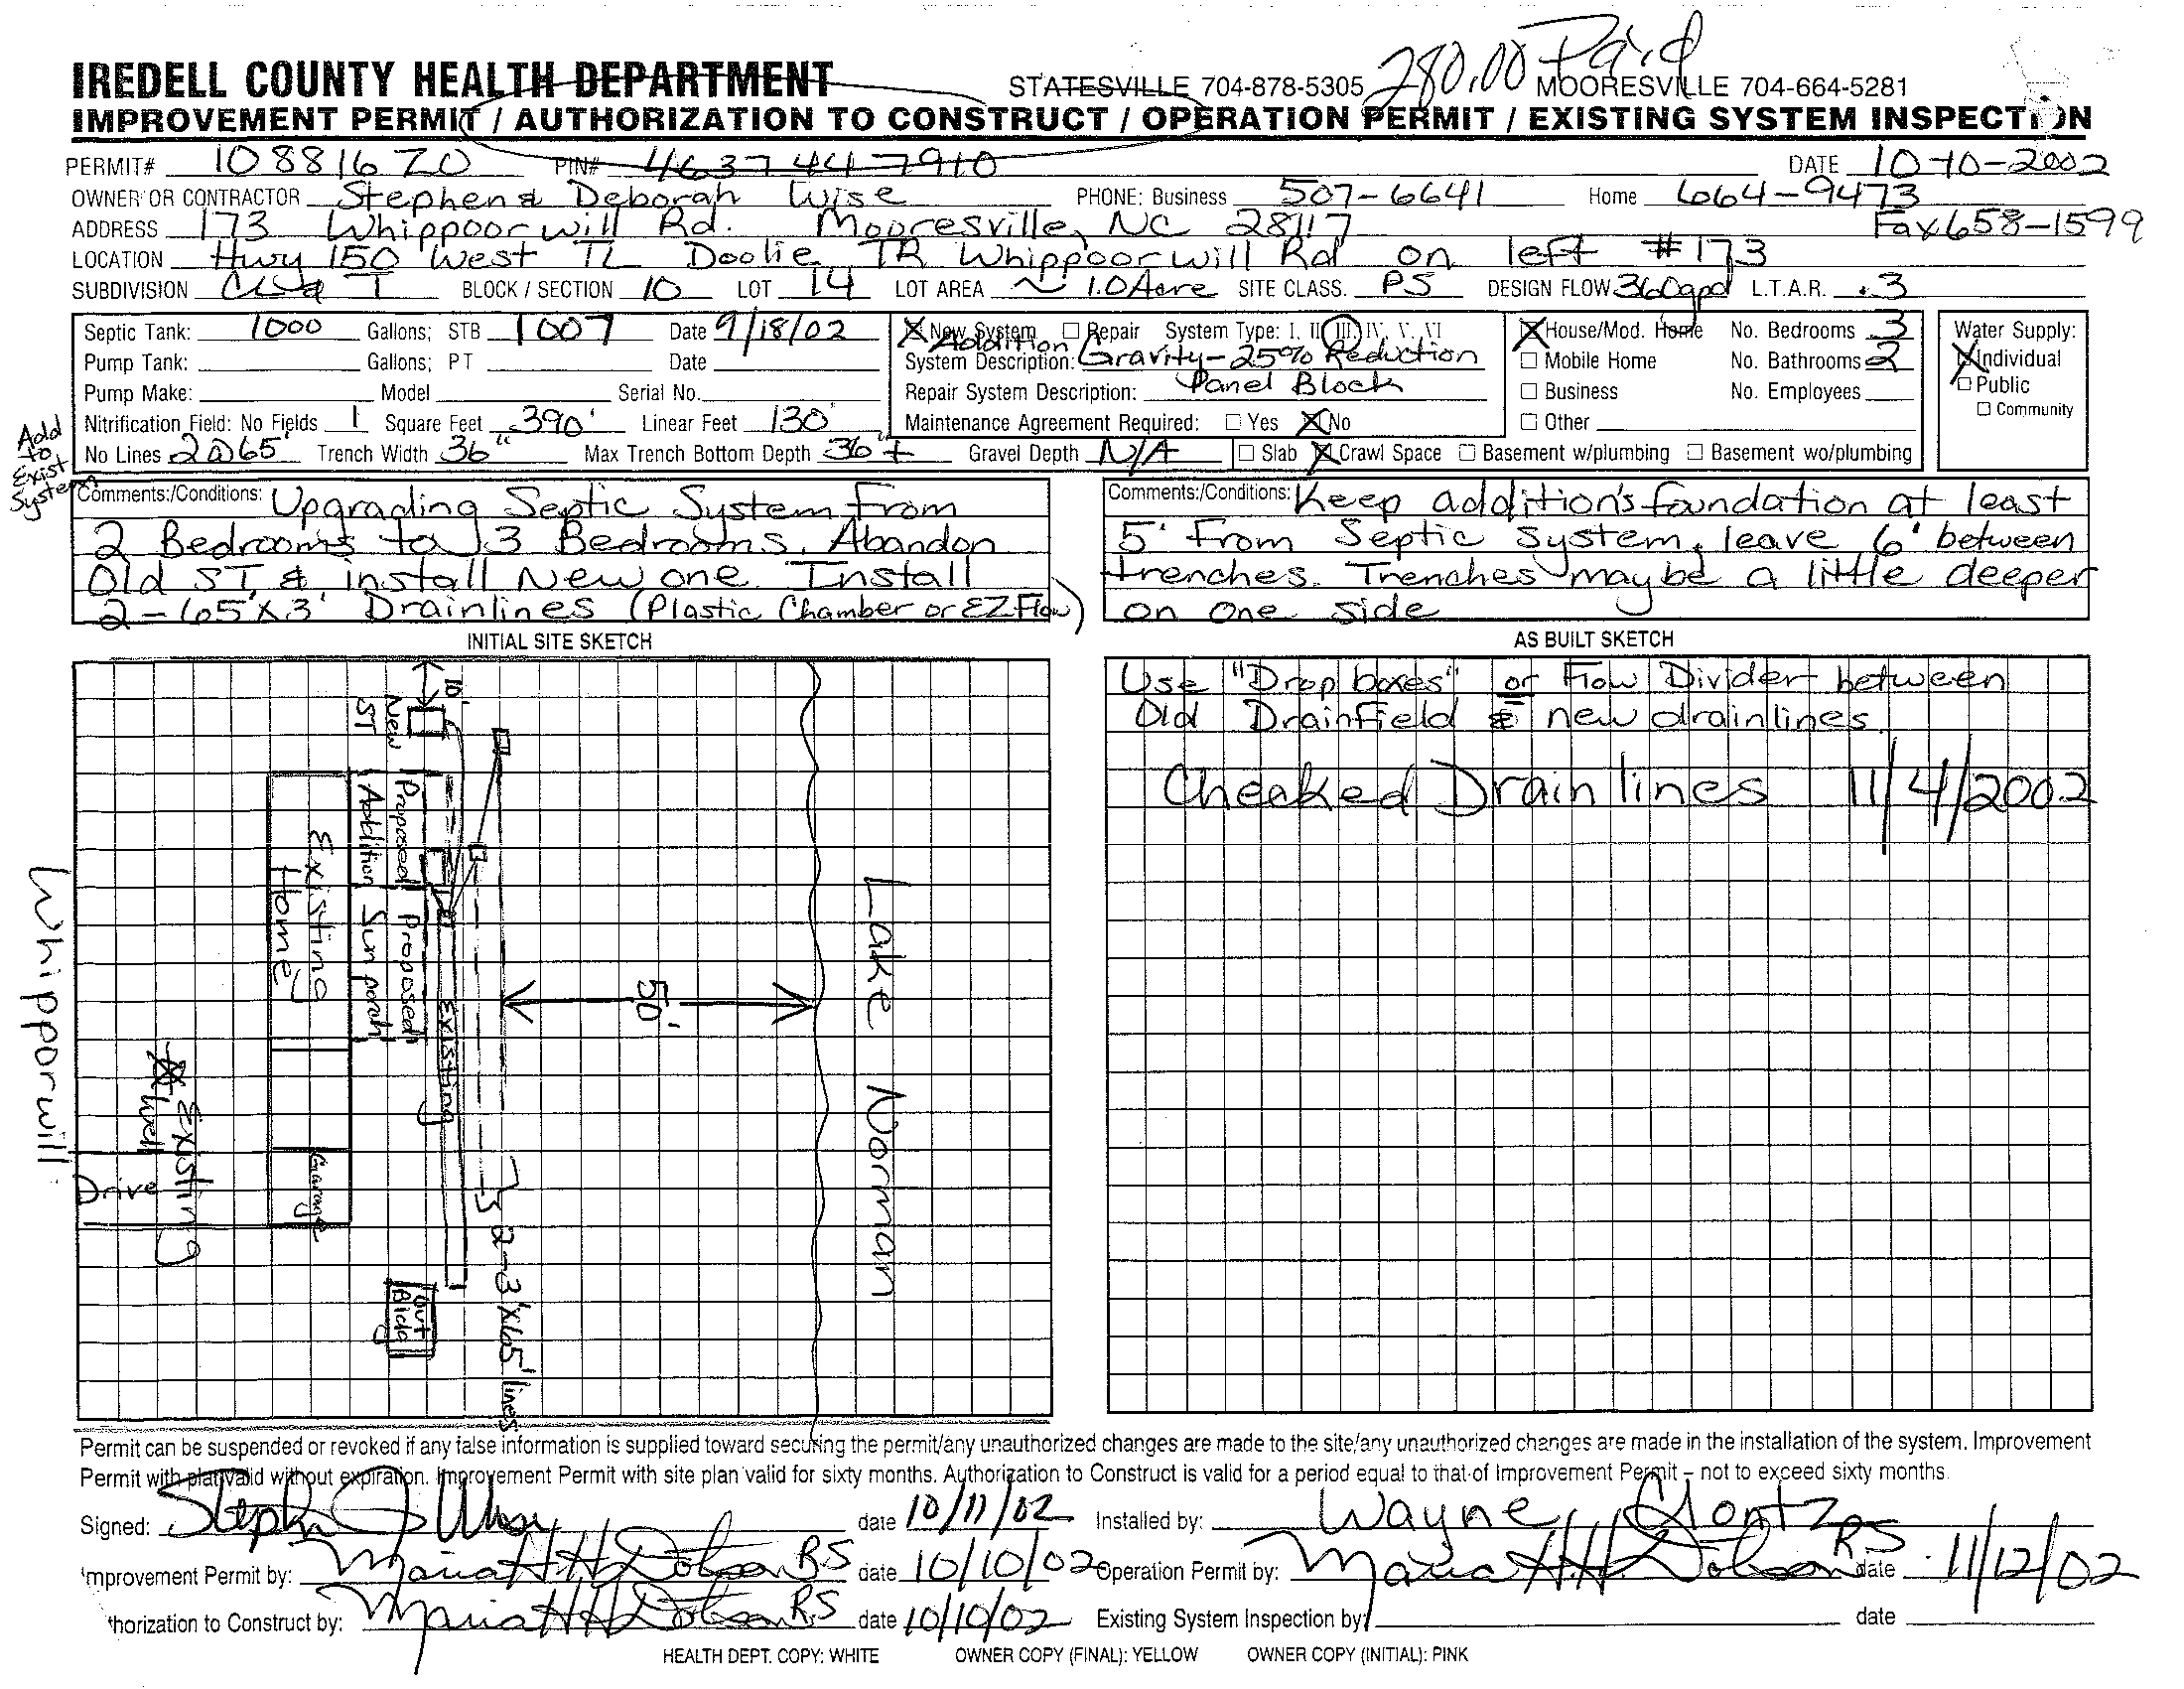 280.00 Paid
IREDELL COUNTY HEALTH DEPARTMENT STATESVILLE 704-878-5305 MOORESVILLE 704-664-5281
IMPROVEMENT PERMIT / AUTHORIZATION TO CONSTRUCT / OPERATION PERMIT / EXISTING SYSTEM INSPECTION
PERMIT# 108816 ZO PIN# 4637 44 7910 DATE 10-10-2002
OWNER OR CONTRACTOR Stephen & Deborah Wise PHONE: Business 507-6641 Home 664-9473
ADDRESS 173 Whippoorwill Rd. Mooresville, NC 28117 Fax 658-1599
LOCATION Hwy 150 West TL Doolie TR Whippoorwill Rd on left #173
SUBDIVISION BLOCK / SECTION 10 LOT 14 LOT AREA ~ 1.0 Acre SITE CLASS. PS DESIGN FLOW 360gpd L.T.A.R. .3
Septic Tank: 1000 Gallons; STB 1007 Date 9/18/02
Pump Tank: Gallons; PT Date
Pump Make: Model Serial No.
Nitrification Field: No Fields 1 Square Feet 390' Linear Feet 130'
No Lines 2@65' Trench Width 36" Max Trench Bottom Depth 36"+ Gravel Depth N/A
Add to Exist System
X New System □ Repair System Type: I, II, III, IV, V, VI
Addition
System Description: Gravity - 25% Reduction
Repair System Description: Panel Block
Maintenance Agreement Required: □ Yes X No
X House/Mod. Home No. Bedrooms 3
□ Mobile Home No. Bathrooms 2
□ Business No. Employees
□ Other
□ Slab X Crawl Space □ Basement w/plumbing □ Basement wo/plumbing
Water Supply:
X Individual
□ Public
□ Community
Comments:/Conditions: Upgrading Septic System From
2 Bedrooms to 3 Bedrooms. Abandon
Old ST & install New one. Install
2-65'X3' Drainlines (Plastic Chamber or EZ Flow)
Comments:/Conditions: Keep addition's foundation at least
5' From Septic System, leave 6' between
trenches. Trenches may be a little deeper
on one side
INITIAL SITE SKETCH
10'
New
ST
Proposed
Addition
Proposed
Sun porch
Existing
Home
Existing
50'
Lake Norman
Whipporwill
Existing
Well
Drive
Garage
Out
Bldg
2-3'x65' lines
AS BUILT SKETCH
Use "Drop boxes" or Flow Divider between
Old Drainfield & new drainlines.
Cheaked Drain lines 11/4/2002
Permit can be suspended or revoked if any false information is supplied toward securing the permit/any unauthorized changes are made to the site/any unauthorized changes are made in the installation of the system. Improvement
Permit with plat valid without expiration. Improvement Permit with site plan valid for sixty months. Authorization to Construct is valid for a period equal to that of Improvement Permit – not to exceed sixty months.
Signed: Stephen J Wise date 10/11/02 Installed by: Wayne Clontz
Improvement Permit by: Maria H H Dotson RS date 10/10/02 Operation Permit by: Maria H.H. Dotson RS date 11/12/02
horization to Construct by: Maria H H Dotson RS date 10/10/02 Existing System Inspection by: date
HEALTH DEPT. COPY: WHITE OWNER COPY (FINAL): YELLOW OWNER COPY (INITIAL): PINK